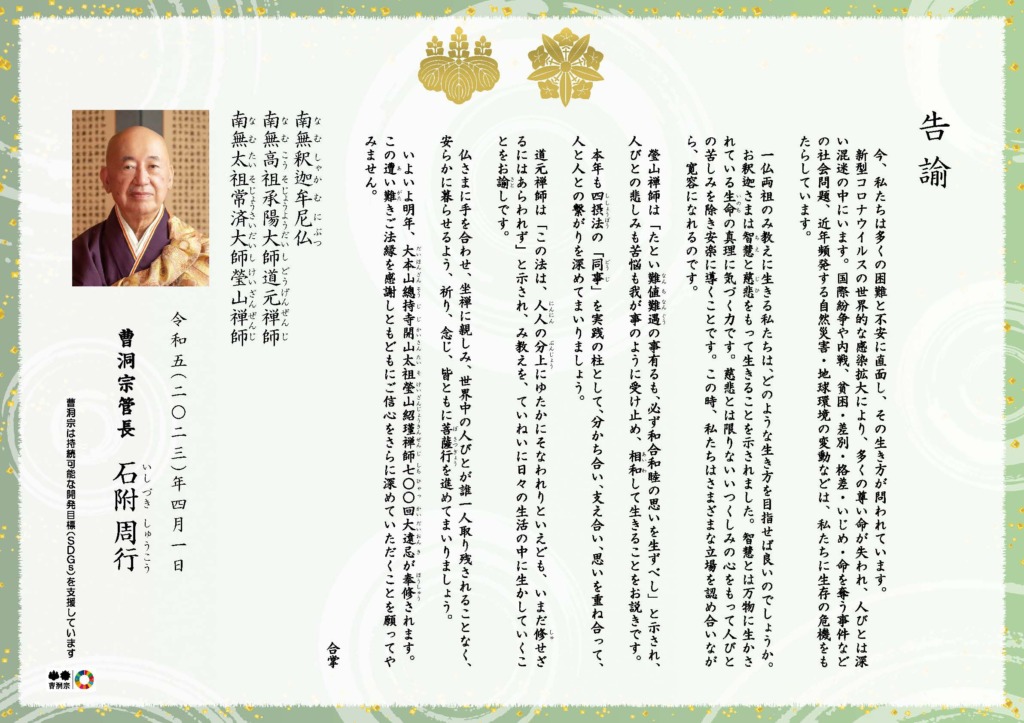 告諭
今、私たちは多くの困難と不安に直面し、その生き方が問われています。
新型コロナウイルスの世界的な感染拡大により、多くの尊い命が失われ、人びとは深
い混迷の中にいます。国際紛争や内戦、貧困・差別・格差・いじめ・命を奪う事件など
の社会問題、近年頻発する自然災害・地球環境の変動などは、私たちに生存の危機をも
たらしています。
一仏両祖のみ教えに生きる私たちは、どのような生き方を目指せば良いのでしょうか。
お釈迦さまは智慧と慈悲をもって生きることを示されました。智慧とは万物に生かさ
れている生命の真理に気づく力です。慈悲とは限りないいつくしみの心をもって人びと
の苦しみを除き安楽に導くことです。この時、私たちはさまざまな立場を認め合いなが
ら、寛容になれるのです。
瑩山禅師は「たとい難値難遇の事有るも、必ず和合和睦の思いを生ずべし」と示され、
人びとの悲しみも苦悩も我が事のように受け止め、相和して生きることをお説きです。
本年も四摂法の「同事」を実践の柱として、分かち合い、支え合い、思いを重ね合って、
人と人との繋がりを深めてまいりましょう。
道元禅師は「この法は、人人の分上にゆたかにそなわれりといえども、いまだ修せざ
るにはあらわれず」と示され、み教えを、ていねいに日々の生活の中に生かしていくこ
とをお諭しです。
仏さまに手を合わせ、坐禅に親しみ、世界中の人びとが誰一人取り残されることなく、
安らかに暮らせるよう、祈り、念じ、皆ともに菩薩行を進めてまいりましょう。
いよいよ明年、大本山總持寺開山太祖瑩山紹瑾禅師七〇〇回大遠忌が奉修されます。
この遭い難きご法縁を感謝しともどもにご信心をさらに深めていただくことを願ってや
みません。
合掌
南無釈迦牟尼仏
南無高祖承陽大師道元禅師
南無太祖常済大師瑩山禅師
令和五（二〇二三）年四月一日
曹洞宗管長 石附周行
いしづき しゅうこう
曹洞宗は持続可能な開発目標（SDGs）を支援しています
曹洞宗